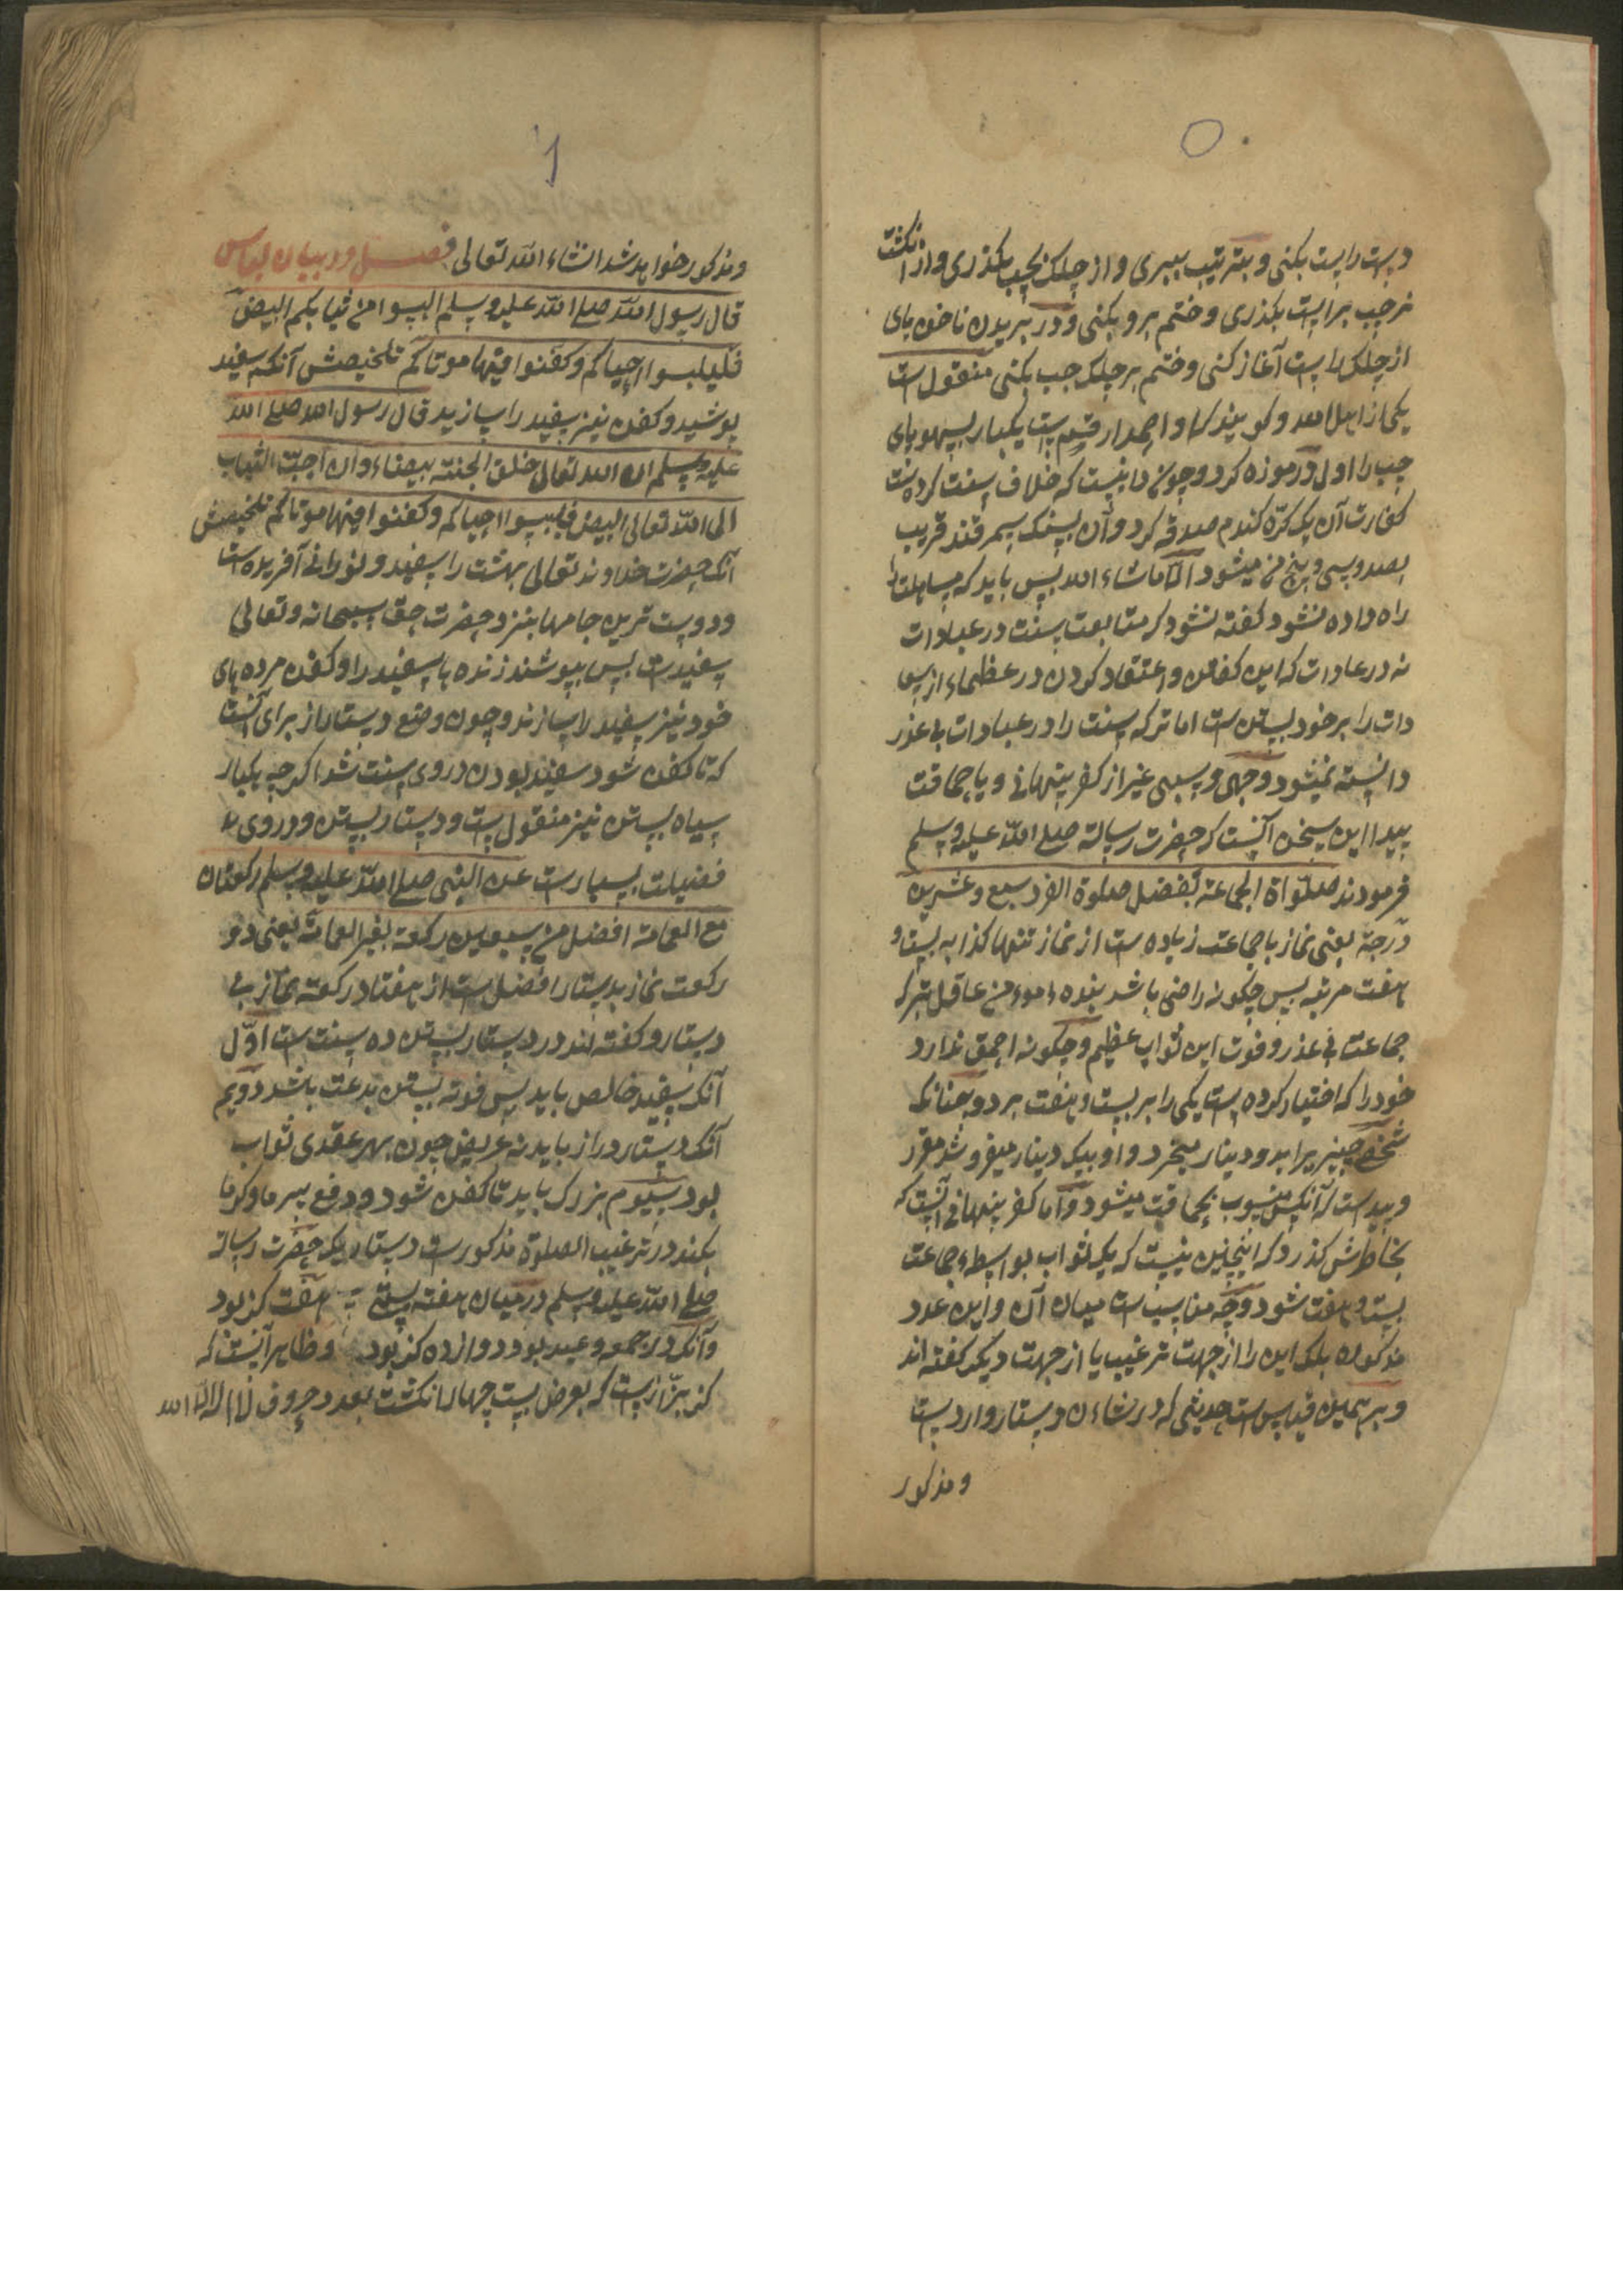 دست راست بکنی و بترتیب ببری و از چلک بچپ بگذری و از انکشت
نر چپ براست بگذری و ختم برو بکنی و در بریدن ناخن پای
از چلک راست آغاز کنی و ختم بر چلک چپ بکنی منقول است
یکی از اهل الله و کویند که او احمد ارقم است یکبار بسهو پای
چپ را اول در موزه کرد و چون دانست که خلاف سنت کرده است
کفارت آن یک کره کندم صدقه کرد و آن بسنک سمرقند قریب
بصد و سی و پنج من میشود الا ماشاء الله پس باید که مساهلت
راه داده نشود گفته نشود که متابعت سنت در عبادات
نه در عادات که این گفتن و اعتقاد کردن در عظماء از سعا
دات را بر خود بستن است اما ترک سنت را در عبادات بی عذر
دانسته نمیشود وجهی و سببی غیر از کفر پنهانی و یا حماقت
پیدا این سخن آنست که حضرت رسالة صلی الله علیه وسلم
فرمودند صلواة الجماعة تفضل صلوة الفرد سبع و عشرین
درجة یعنی نماز با جماعت زیاده است از نماز تنها کذا به بیست و
هفت مرتبه پس چکونه راضی باشد بنده مومن عاقل بترک
جماعت بی عذر و فوت این ثواب عظیم و چکونه احمق ندارد
خود را که اختیار کرده است یکی را بر بیست و هفت بر دو چنانکه
شخصی چیزیرا بدو دینار میخرد و او بیک دینار میفروشد مقرر
و پید است که آنکس منسوب بحماقت میشود و اما کفر پنهانی آنست که
بخاطرش کذرد که اینچنین نیست که یک ثواب بواسطه جماعت
بیست و هفت شود و چه مناسبت است میان آن و این عدد
مذکوره بلکه این را از جهت ترغیب یا از جهت دیکر گفته اند
و بر همین قیاس است حدیثی که در شاءن دستار وارد است
و مذکور
و مذکور خواهد شد انشاء الله تعالی فصل در بیان لباس
قال رسول الله صلی الله علیه وسلم البسوا من ثیابکم البیض
فلیلبسوا احیاکم و کفنوا فیها موتاکم تلخیصش آنکه سفید
پوشید و کفن نیز سفید را سازید قال رسول الله صلی الله
علیه وسلم ان الله تعالی خلق الجنة بیضاء و ان احب الثیاب
الی الله تعالی البیض فلیبسوا احیاکم و کفنوا فیها موتاکم تلخیصش
آنک حضرت خداوند تعالی بهشت را سفید و نورانی آفریده است
و دوست ترین جامها بنزد حضرت حق سبحانه و تعالی
سفیدست پس بپوشند زنده ها سفید را و کفن مرده های
خود نیز سفید را سازند و چون وضع دستار از برای آنست
که تا کفن شود سفید بودن در وی سنت شد اکرچه یکبار
سیاه بستن نیز منقول است و دستار بستن و در وی
فضیلت بسیارست عن النبی صلی الله علیه وسلم رکعتان
مع العمامة افضل من سبعین رکعة بغیر العمامة یعنی دو
رکعت نماز بدستار افضل است از هفتاد رکعت نماز بی
دستار و گفته اند در دستار بستن ده سنت است اول
آنک سفید خالص باید پس فوته بستن بدعت باشد دویم
آنک دستار دراز باید نه عریض چون بهر عقدی ثواب
بود سیوم بزرک باید تا کفن شود و دفع سرما و کرما
بکند در ترغیب الصلوة مذکورست دستاریکه حضرت رسالة
صلی الله علیه وسلم در میان هفته بستی هفت کز بود
و آنک در جمعه و عید بود دوازده کز بود و ظاهر آنست که
کز بزازست که بعرض بیست چهار انکشت بعدد حروف لا اله الا الله